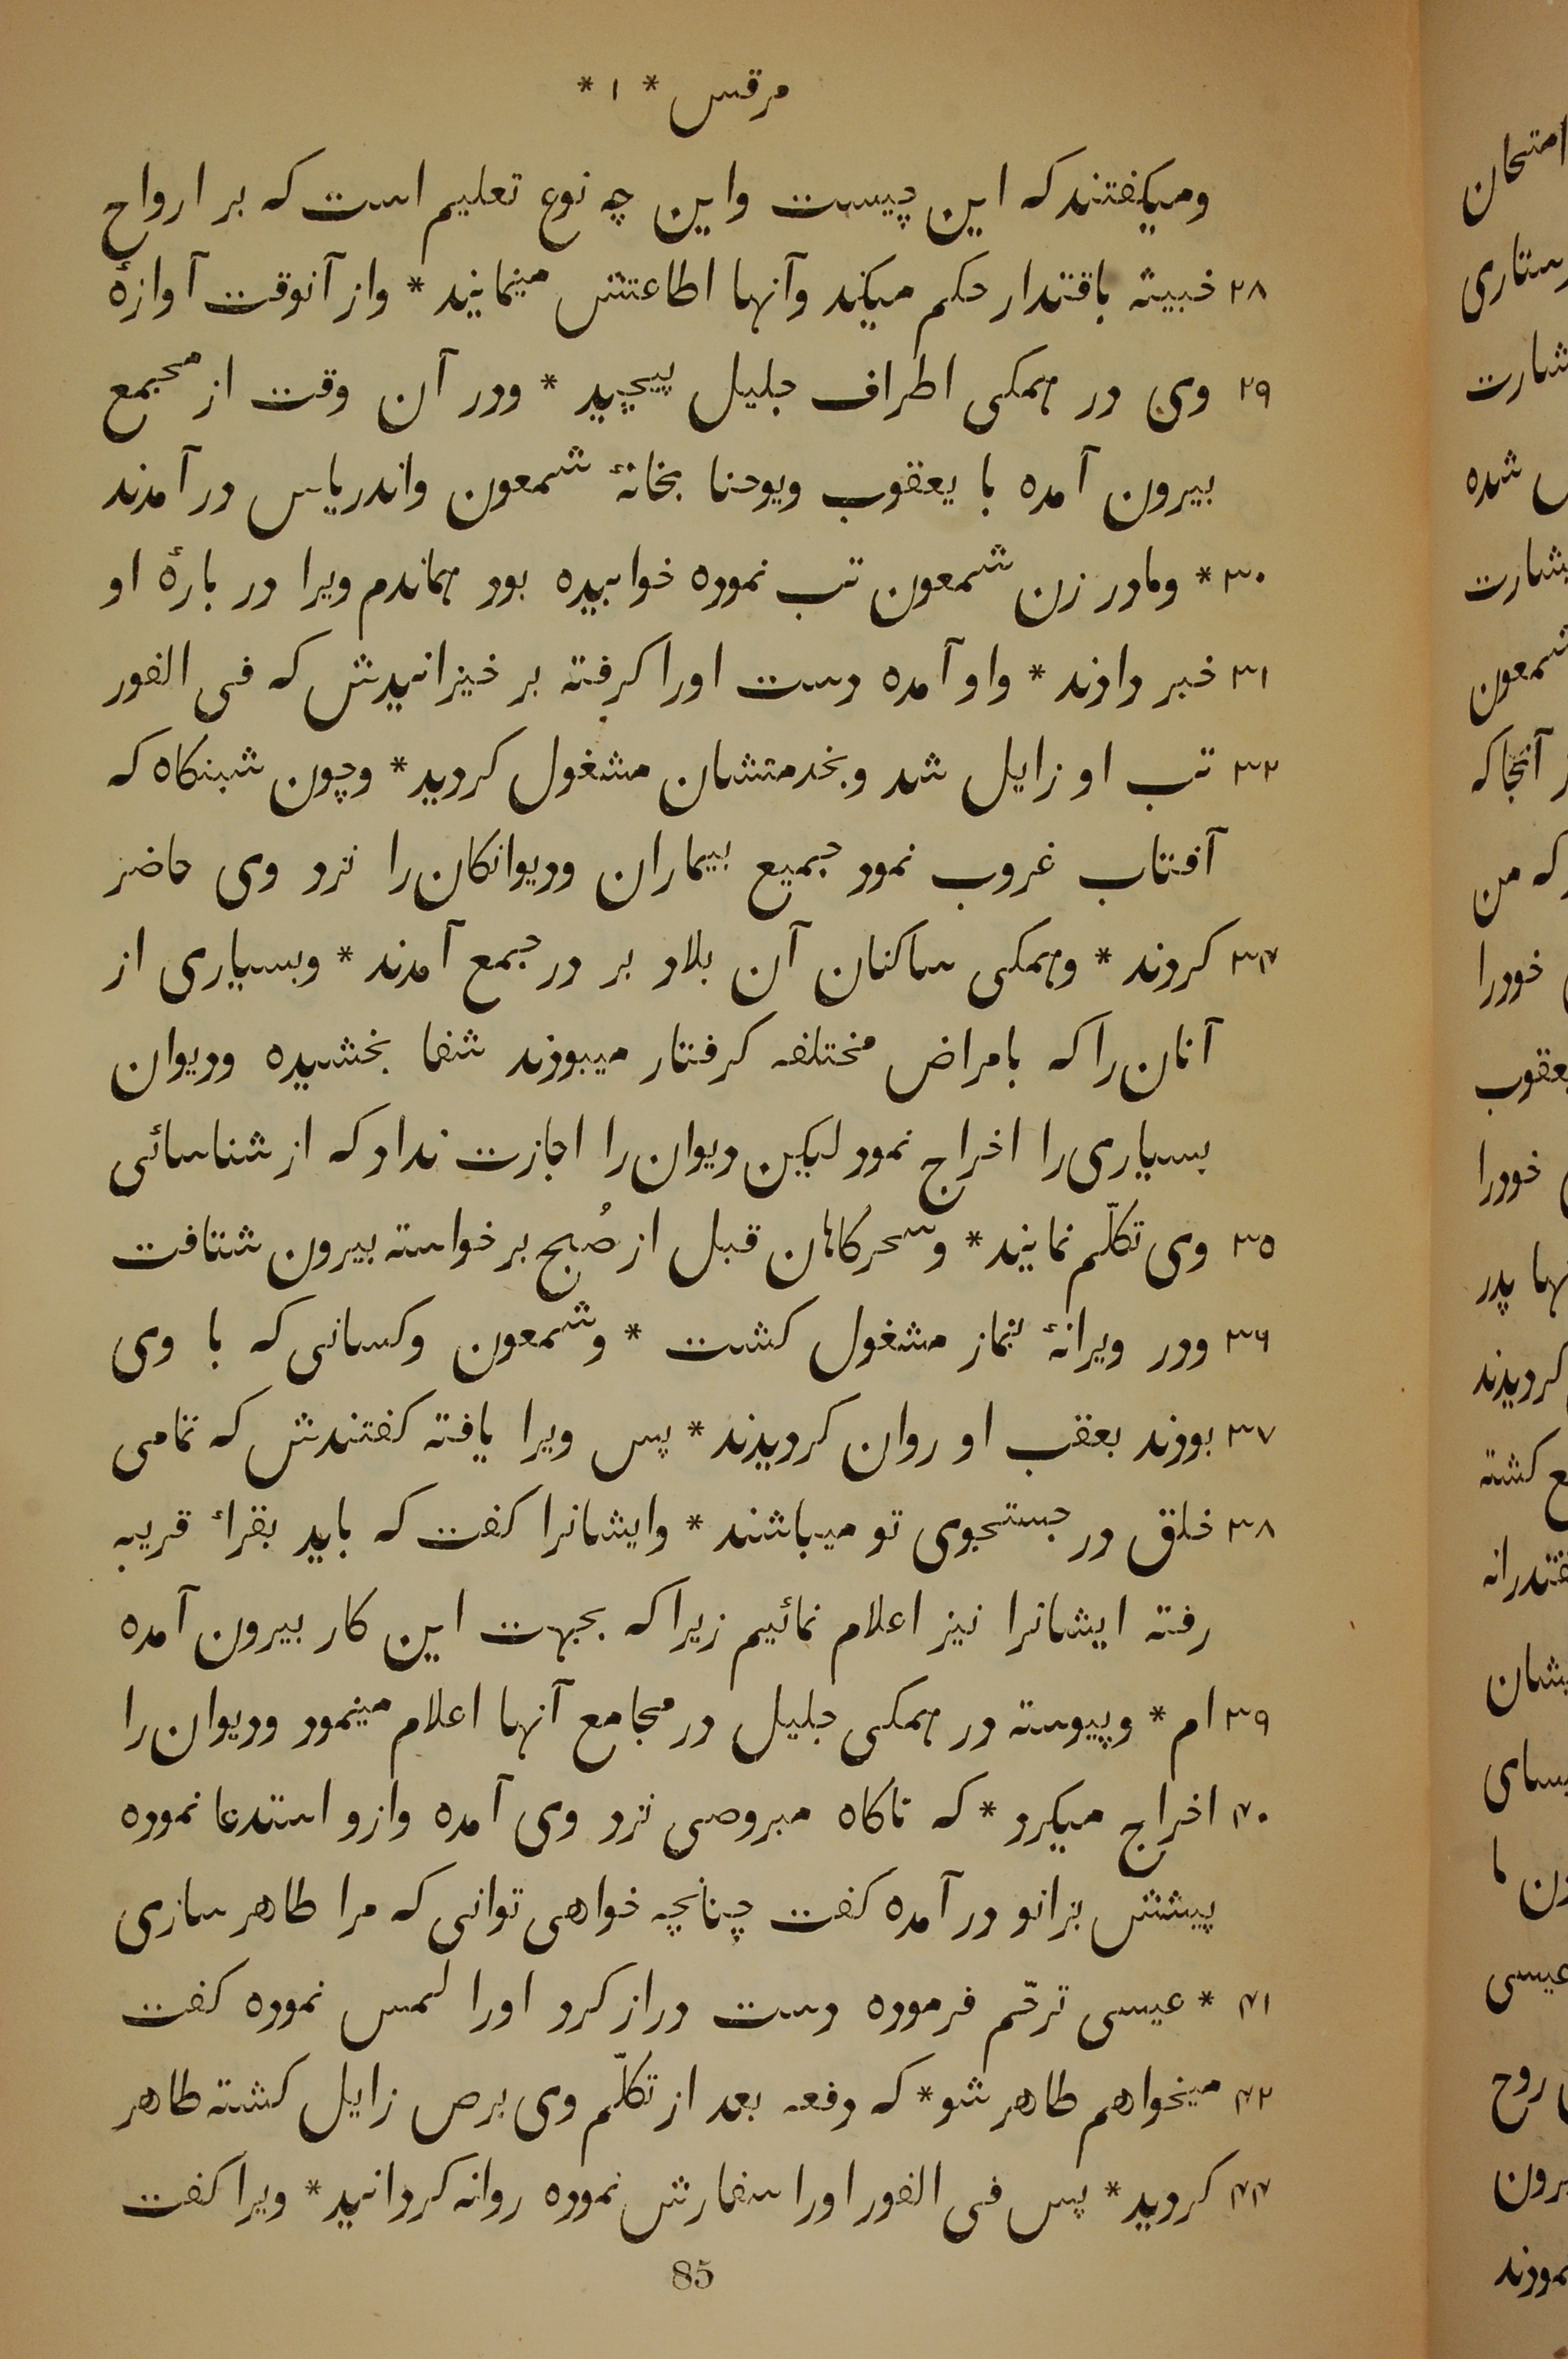 مرقس * ۱ *
ومیکفتند که این چیست واین چه نوع تعلیم است که بر ارواح
۲۸ خبیثه باقتدار حکم میکند وآنها اطاعتش مینمایند * واز آنوقت آوازهٔ
۲۹ وی در همکی اطراف جلیل پیچید * ودر آن وقت از مجمع
بیرون آمده با یعقوب ویوحنا بخانهٔ شمعون واندریاس در آمدند
۳۰ * ومادر زن شمعون تب نموده خوابیده بود هماندم ویرا در بارهٔ او
۳۱ خبر دادند * واو آمده دست اورا کرفته بر خیزانیدش که فی الفور
۳۲ تب او زایل شد وبخدمتشان مشغول کردید * وچون شبنکاه که
آفتاب غروب نمود جمیع بیماران ودیوانکان را نزد وی حاضر
۳۴ کردند * وهمکی ساکنان آن بلاد بر در جمع آمدند * وبسیاری از
آنان را که بامراض مختلفه کرفتار میبودند شفا بخشیده ودیوان
بسیاری را اخراج نمود لیکن دیوان را اجازت نداد که از شناسائی
۳۵ وی تکلّم نمایند * وسحرکاهان قبل از صُبح برخواسته بیرون شتافت
۳۶ ودر ویرانهٔ بنماز مشغول کشت * وشمعون وکسانی که با وی
۳۷ بودند بعقب او روان کردیدند * پس ویرا یافته کفتندش که تمامی
۳۸ خلق در جستجوی تو میباشند * وایشانرا کفت که باید بقراءِ قریبه
رفته ایشانرا نیز اعلام نمائیم زیرا که بجهت این کار بیرون آمده
۳۹ ام * وپیوسته در همکی جلیل در مجامع آنها اعلام مینمود ودیوان را
۴۰ اخراج میکرد * که ناکاه مبروصی نزد وی آمده وازو استدعا نموده
پیشش بزانو در آمده کفت چنانچه خواهی توانی که مرا طاهر سازی
۴۱ * عیسی ترحّم فرموده دست دراز کرد اورا لمس نموده کفت
۴۲ میخواهم طاهر شو * که دفعه بعد از تکلّم وی برص زایل کشته طاهر
۴۴ کردید * پس فی الفور اورا سفارش نموده روانه کردانید * ویرا کفت
85
امتحان
شده
شمعون
آنجا که
که من
خودرا
یعقوب
خودرا
پدر
کردیدند
کشته
عیسی
روح